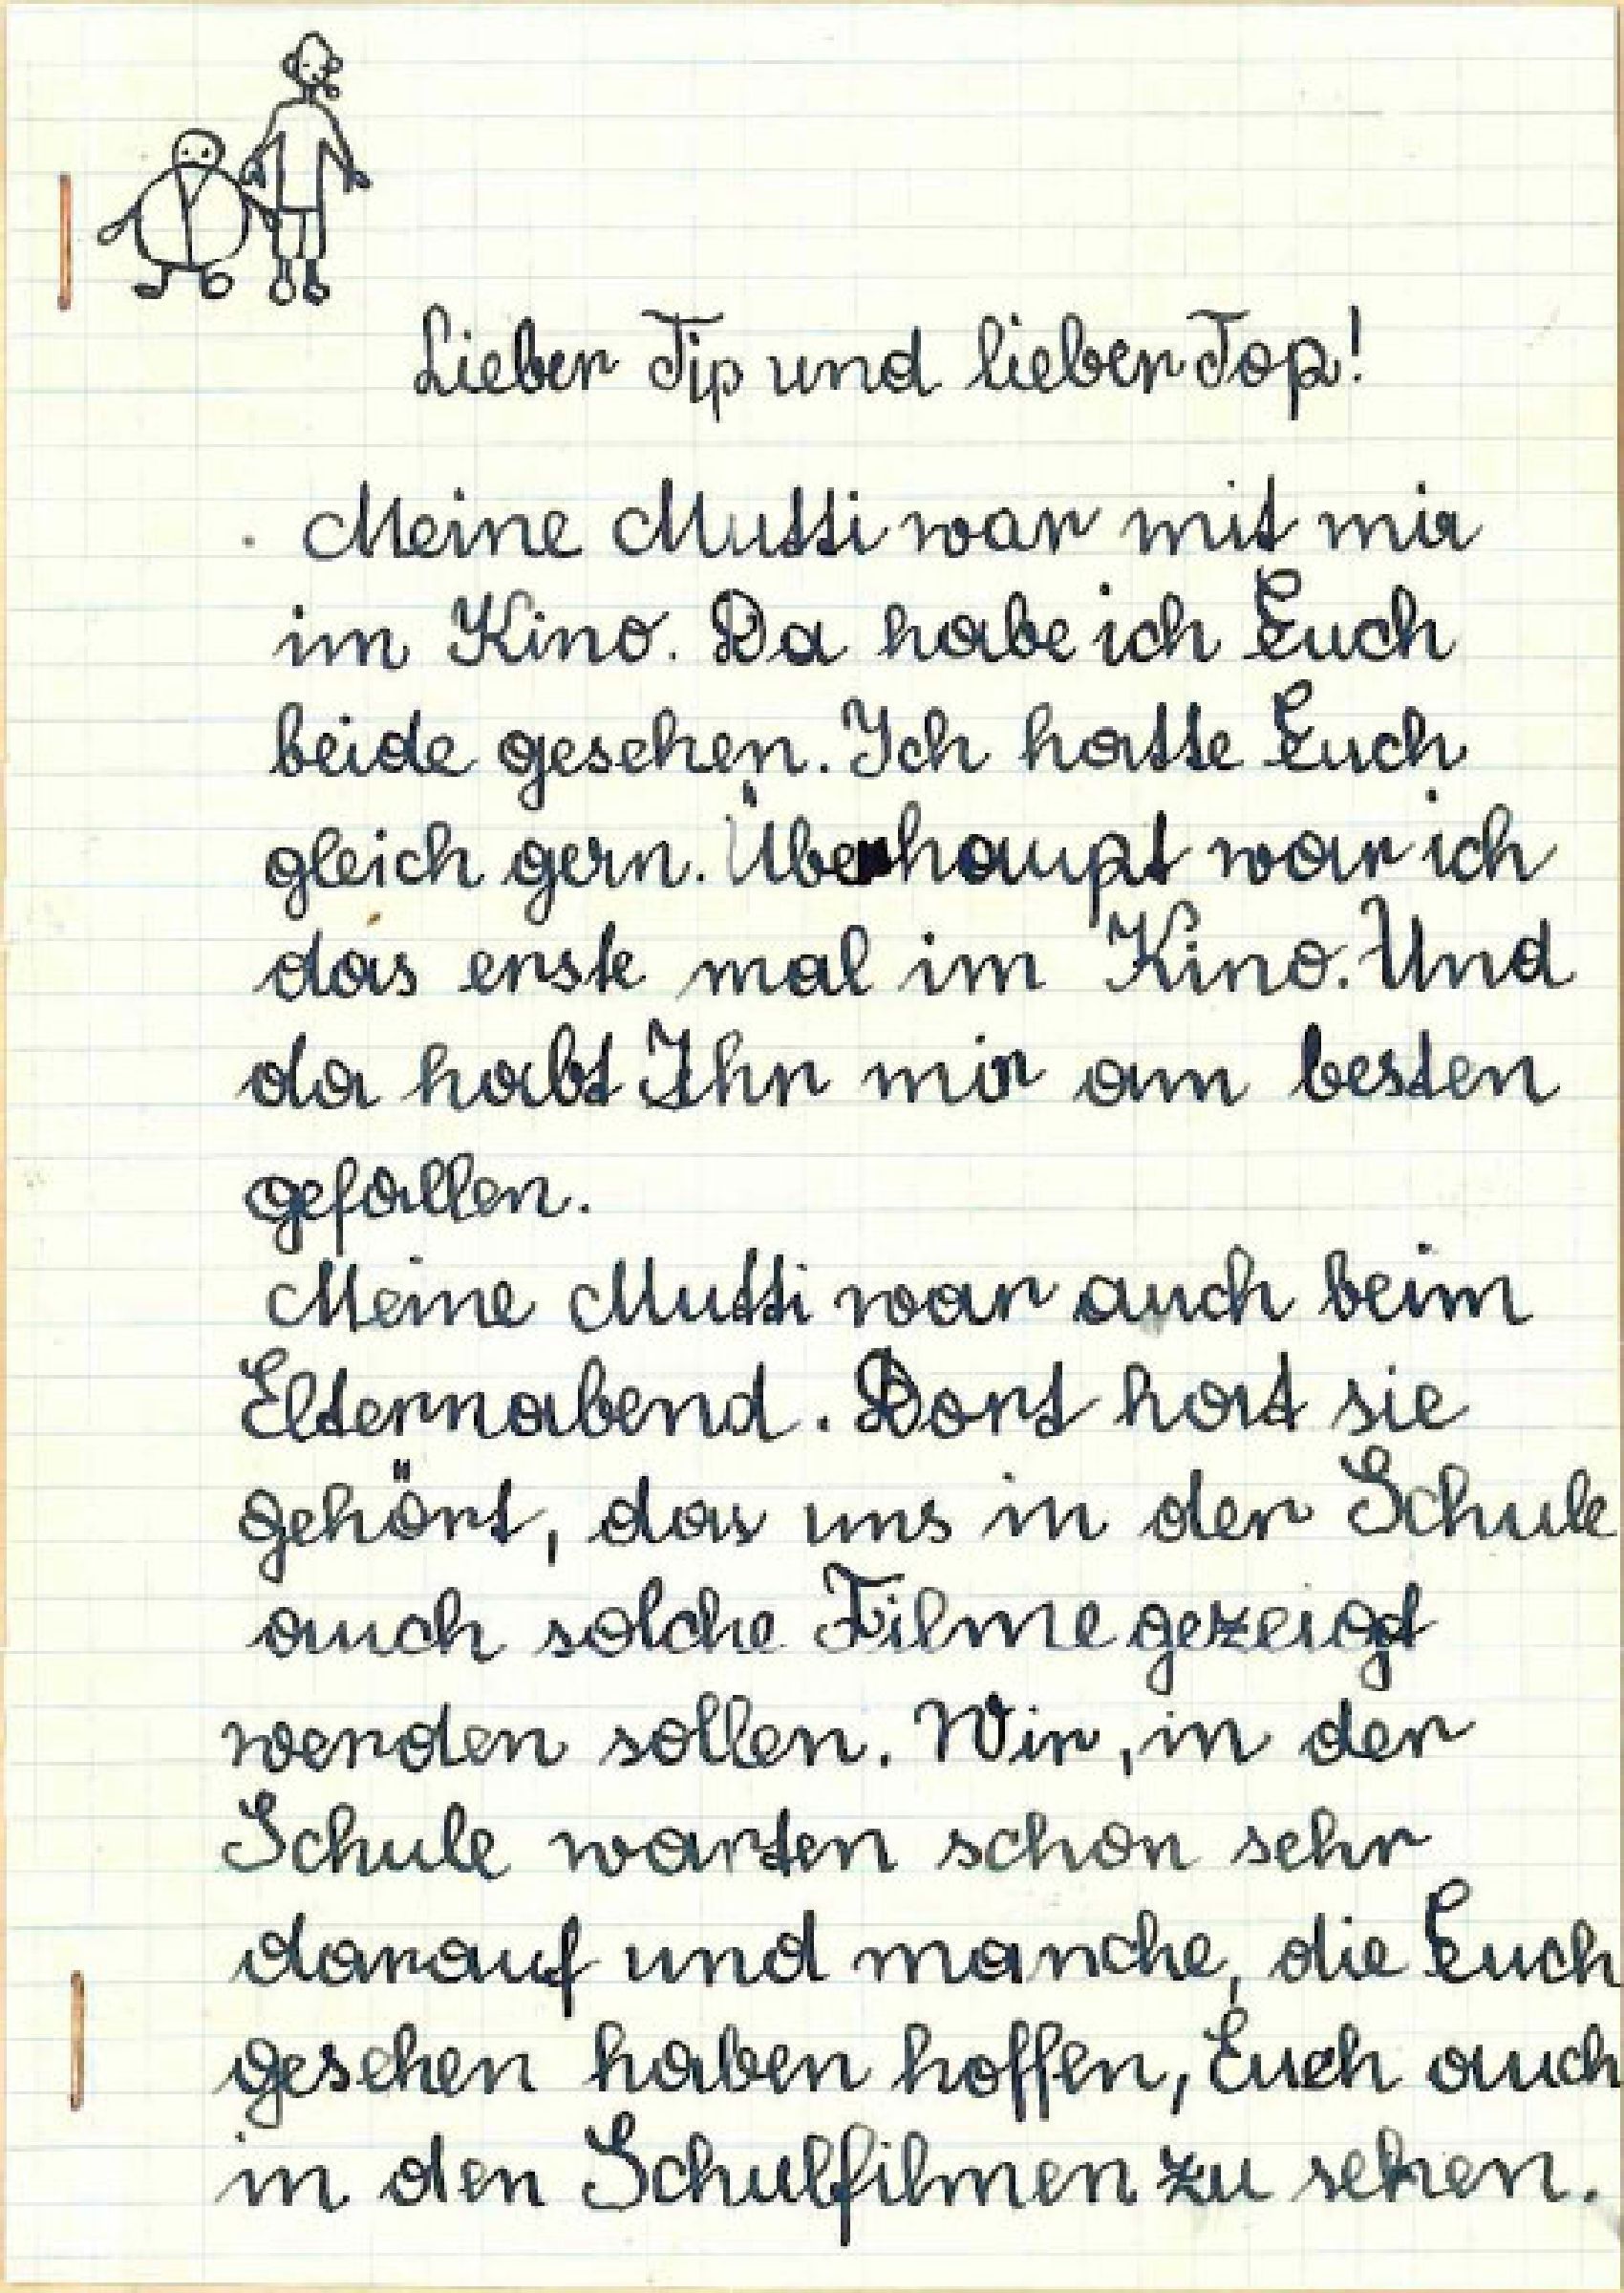 Lieber Tip und lieber Top!
Meine Mutti war mit mir
im Kino. Da habe ich Euch
beide gesehen. Ich hatte Euch
gleich gern. Überhaupt war ich
das erste mal im Kino. Und
da habt Ihr mir am besten
gefallen.
Meine Mutti war auch beim
Elternabend. Dort hat sie
gehört, das uns in der Schule
auch solche Filme gezeigt
werden sollen. Wir, in der
Schule warten schon sehr
darauf und manche, die Euch
gesehen haben hoffen, Euch auch
in den Schulfilmen zu sehen.